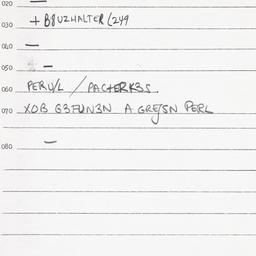 020
030 + B8UZHALTER (249
040
050
060 PERU/L / PACHERKBS.
070 XOB G3FUN3N A GREJSN PERL
080